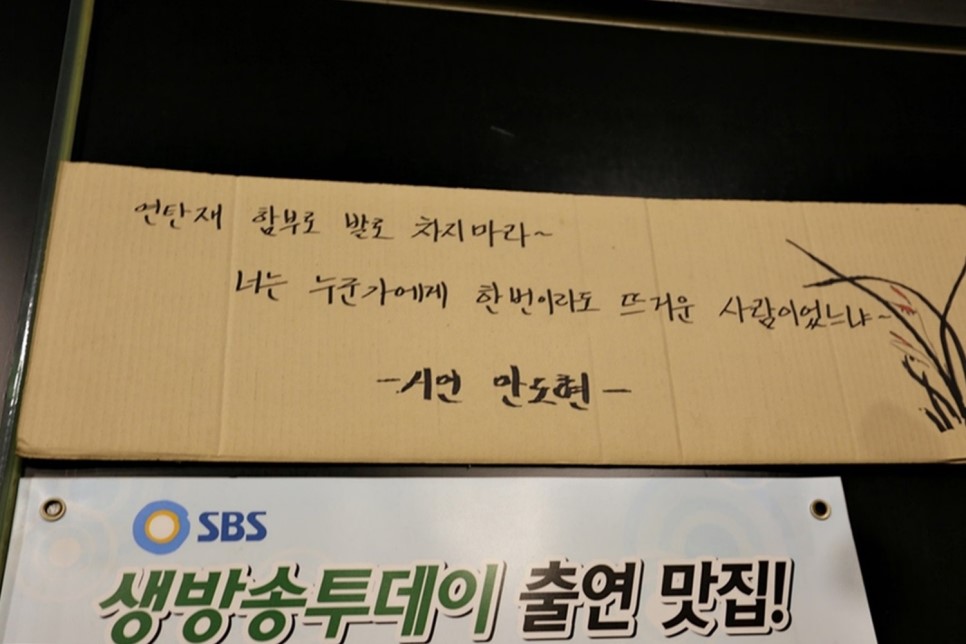 연탄재 함부로 발로 차지마라~
너는 누군가에게 한번이라도 뜨거운 사람이었느냐~
-시인 안도현-
SBS
생방송투데이 출연 맛집!